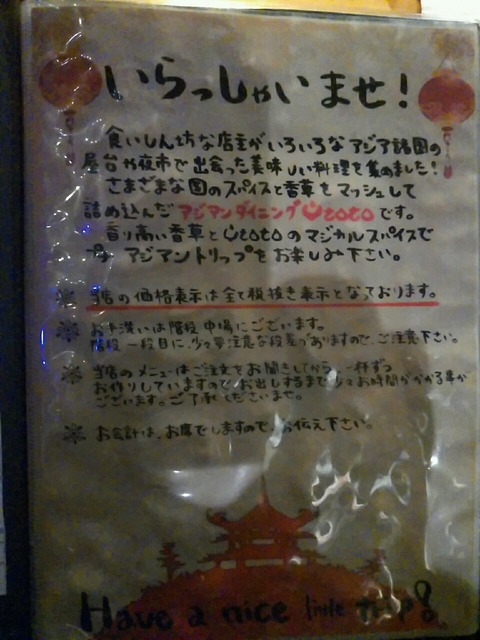 いらっしゃいませ!
食いしん坊な店主がいろいろなアジア諸国の
屋台や夜市で出会った美味しい料理を集めました!
さまざまな国のスパイスと香草をマッシュして
詰め込んだアジアンダイニングです。
香り高い香草とのマジカルスパイスで
アジアントリップをお楽しみ下さい。
※ 当店の価格表示は全て税抜き表示となっております。
※ お手洗いは階段中場にございます。
階段一段目に、少々要注意な段差がありますので、ご注意下さい。
※ 当店のメニューはご注文をお聞きしてから、一杯ずつ
お作りしていますので、お出しするまで少々お時間がかかる事が
ございます。ご了承くださいませ。
※ お会計は、お席でしますので、お伝え下さい。
Have a nice little trip!